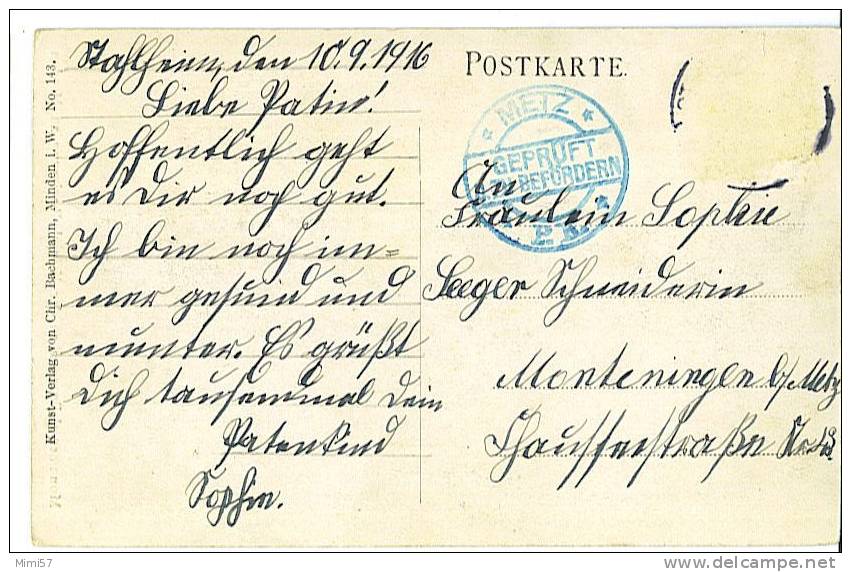 Stahlheim, den 10.9.1916
Liebe Patin!
Hoffentlich geht
es Dir noch gut.
Ich bin noch im=
mer gesund und
munter. Es grüßt
Dich tausendmal Dein
Patenkind
Sophie.
POSTKARTE.
METZ
GEPRÜFT
BEFÖRDERN
P.K.
An
Fräulein Sophie
Seeger Schneiderin
Monteningen b/Metz
Chausseestraße Nr.
Kunst-Verlag von Chr. Bachmann, Minden i. W. No. 143.
Mimi57
www.delcampe.net